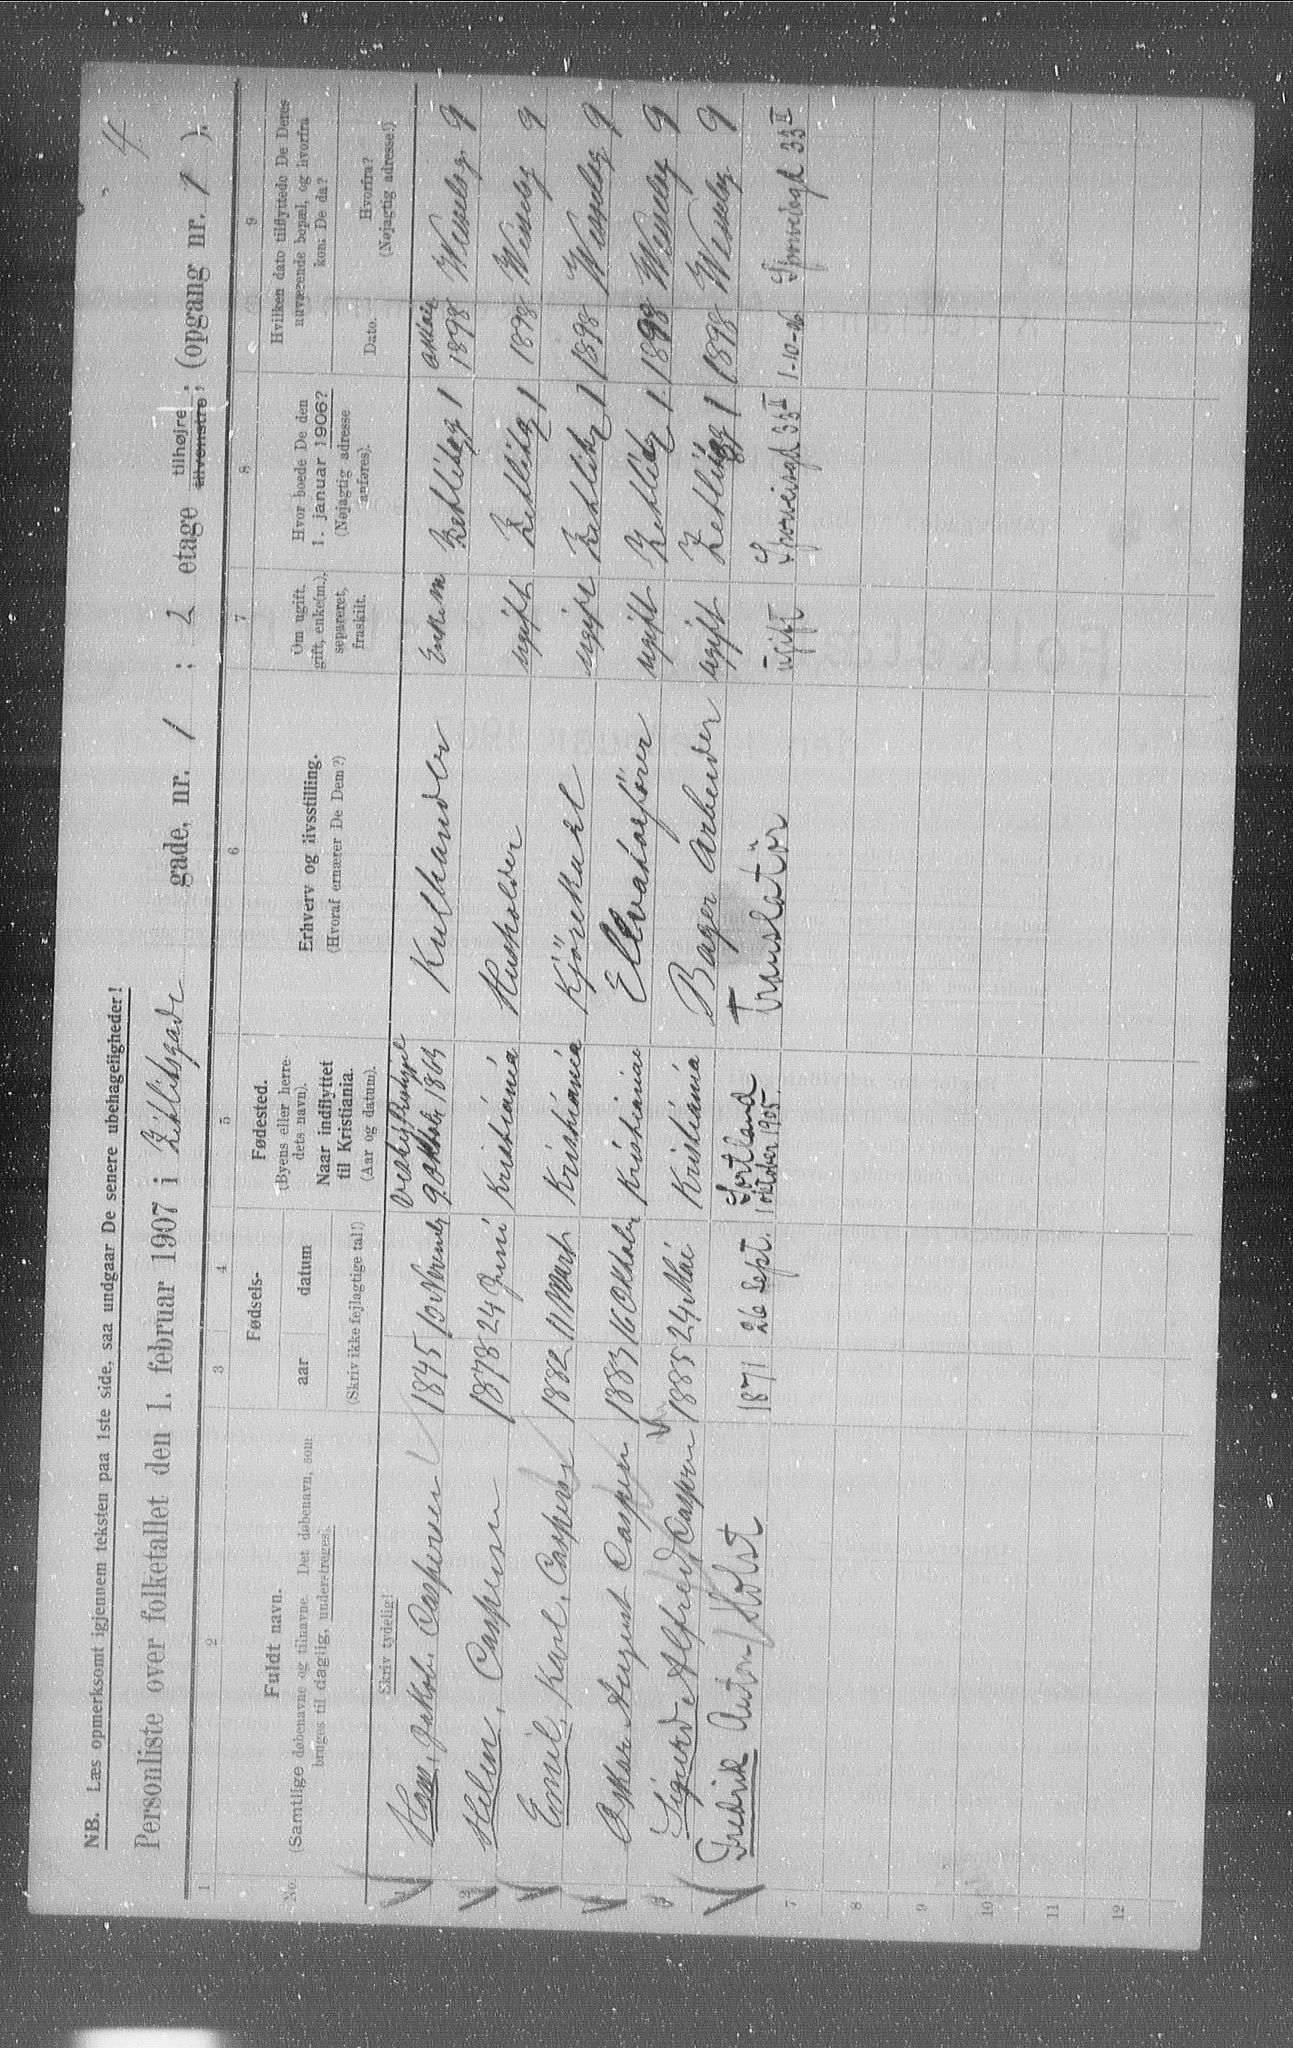 4
NB. Læs opmerksomt igjennem teksten paa 1ste side, saa undgaar De senere ubehageligheder!
Personliste over folketallet den 1. februar 1907 i Zetlitzgade gade, nr. 1 ; 2 etage tilhøjre tilvenstre, (opgang nr. 1 ).
1 2 3 4 5 6 7 8 9
No.
Fuldt navn.
(Samtlige døbenavne og tilnavne. Det døbenavn, som
bruges til daglig, understreges).
Skriv tydelig!
Fødsels-
aar datum
(Skriv ikke fejlagtige tal!)
Fødested.
(Byens eller herre-
dets navn).
Naar indflyttet
til Kristiania.
(Aar og datum).
Erhverv og livsstilling.
(Hvoraf ernærer De Dem?)
Om ugift,
gift, enke(m.),
separeret,
fraskilt.
Hvor boede De den
1. januar 1906?
(Nøjagtig adresse
anføres).
Hvilken dato tilflyttede De Deres
nuværende bopæl, og hvorfra
kom De da?
Dato. Hvorfra?
(Nøjagtig adresse!)
1 Hans Jakob Caspersen 1845 10 November 1863 Kulhandler Enkem 1 1898 9
2 Helen, Caspersen 1878 24 Juni Kristiania Husholder ugift 1 1898 9
Emil, Karl, Caspersen 1882 11 Mart Kristiania Kjörekarl ugift 1 1898 9
Oskar August Caspersen 1883 16 Oktober Kristiania ugift 1 1898 9
5 Sigurd Alfred Caspersen 1885 24 Mai Kristiania Bager Arbeider ugift 1 1898 9
Fredrik Anton Holst 1871 26 Sept. Sortland 1 oktober 1905. Translatör ugift 33 II 1-10-06 33 II
7
8
9
10
11
12